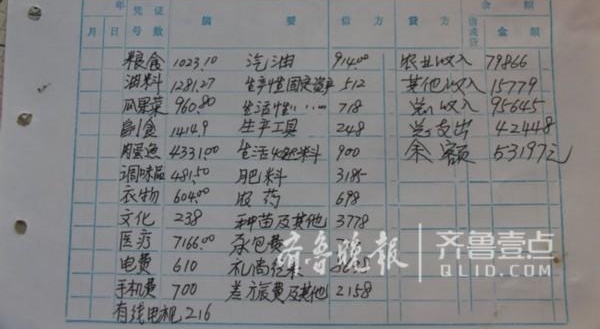 年 凭证 摘 要 借方 贷方 借或贷 余额
月 日 号数 金额
粮食 1023.10 汽油 914.00 农业收入 79866
油料 1281.27 生产性固定资产 512 其他收入 15779
瓜果菜 960.80 生活性〃〃 718 总收入 95645
副食 1414.9 生产工具 248 总支出 42448
肉蛋鱼 4331.00 生活燃料 900 余额 53197元
调味品 481.50 肥料 3185
衣物 604.00 农药 698
文化 238 种苗及其他 3778
医疗 7166.00 承包费
电费 610 礼尚往来
手机费 700 差方旅费及其他 2158
有线电视 216
齐鲁晚报 齐鲁壹点
QLID.COM